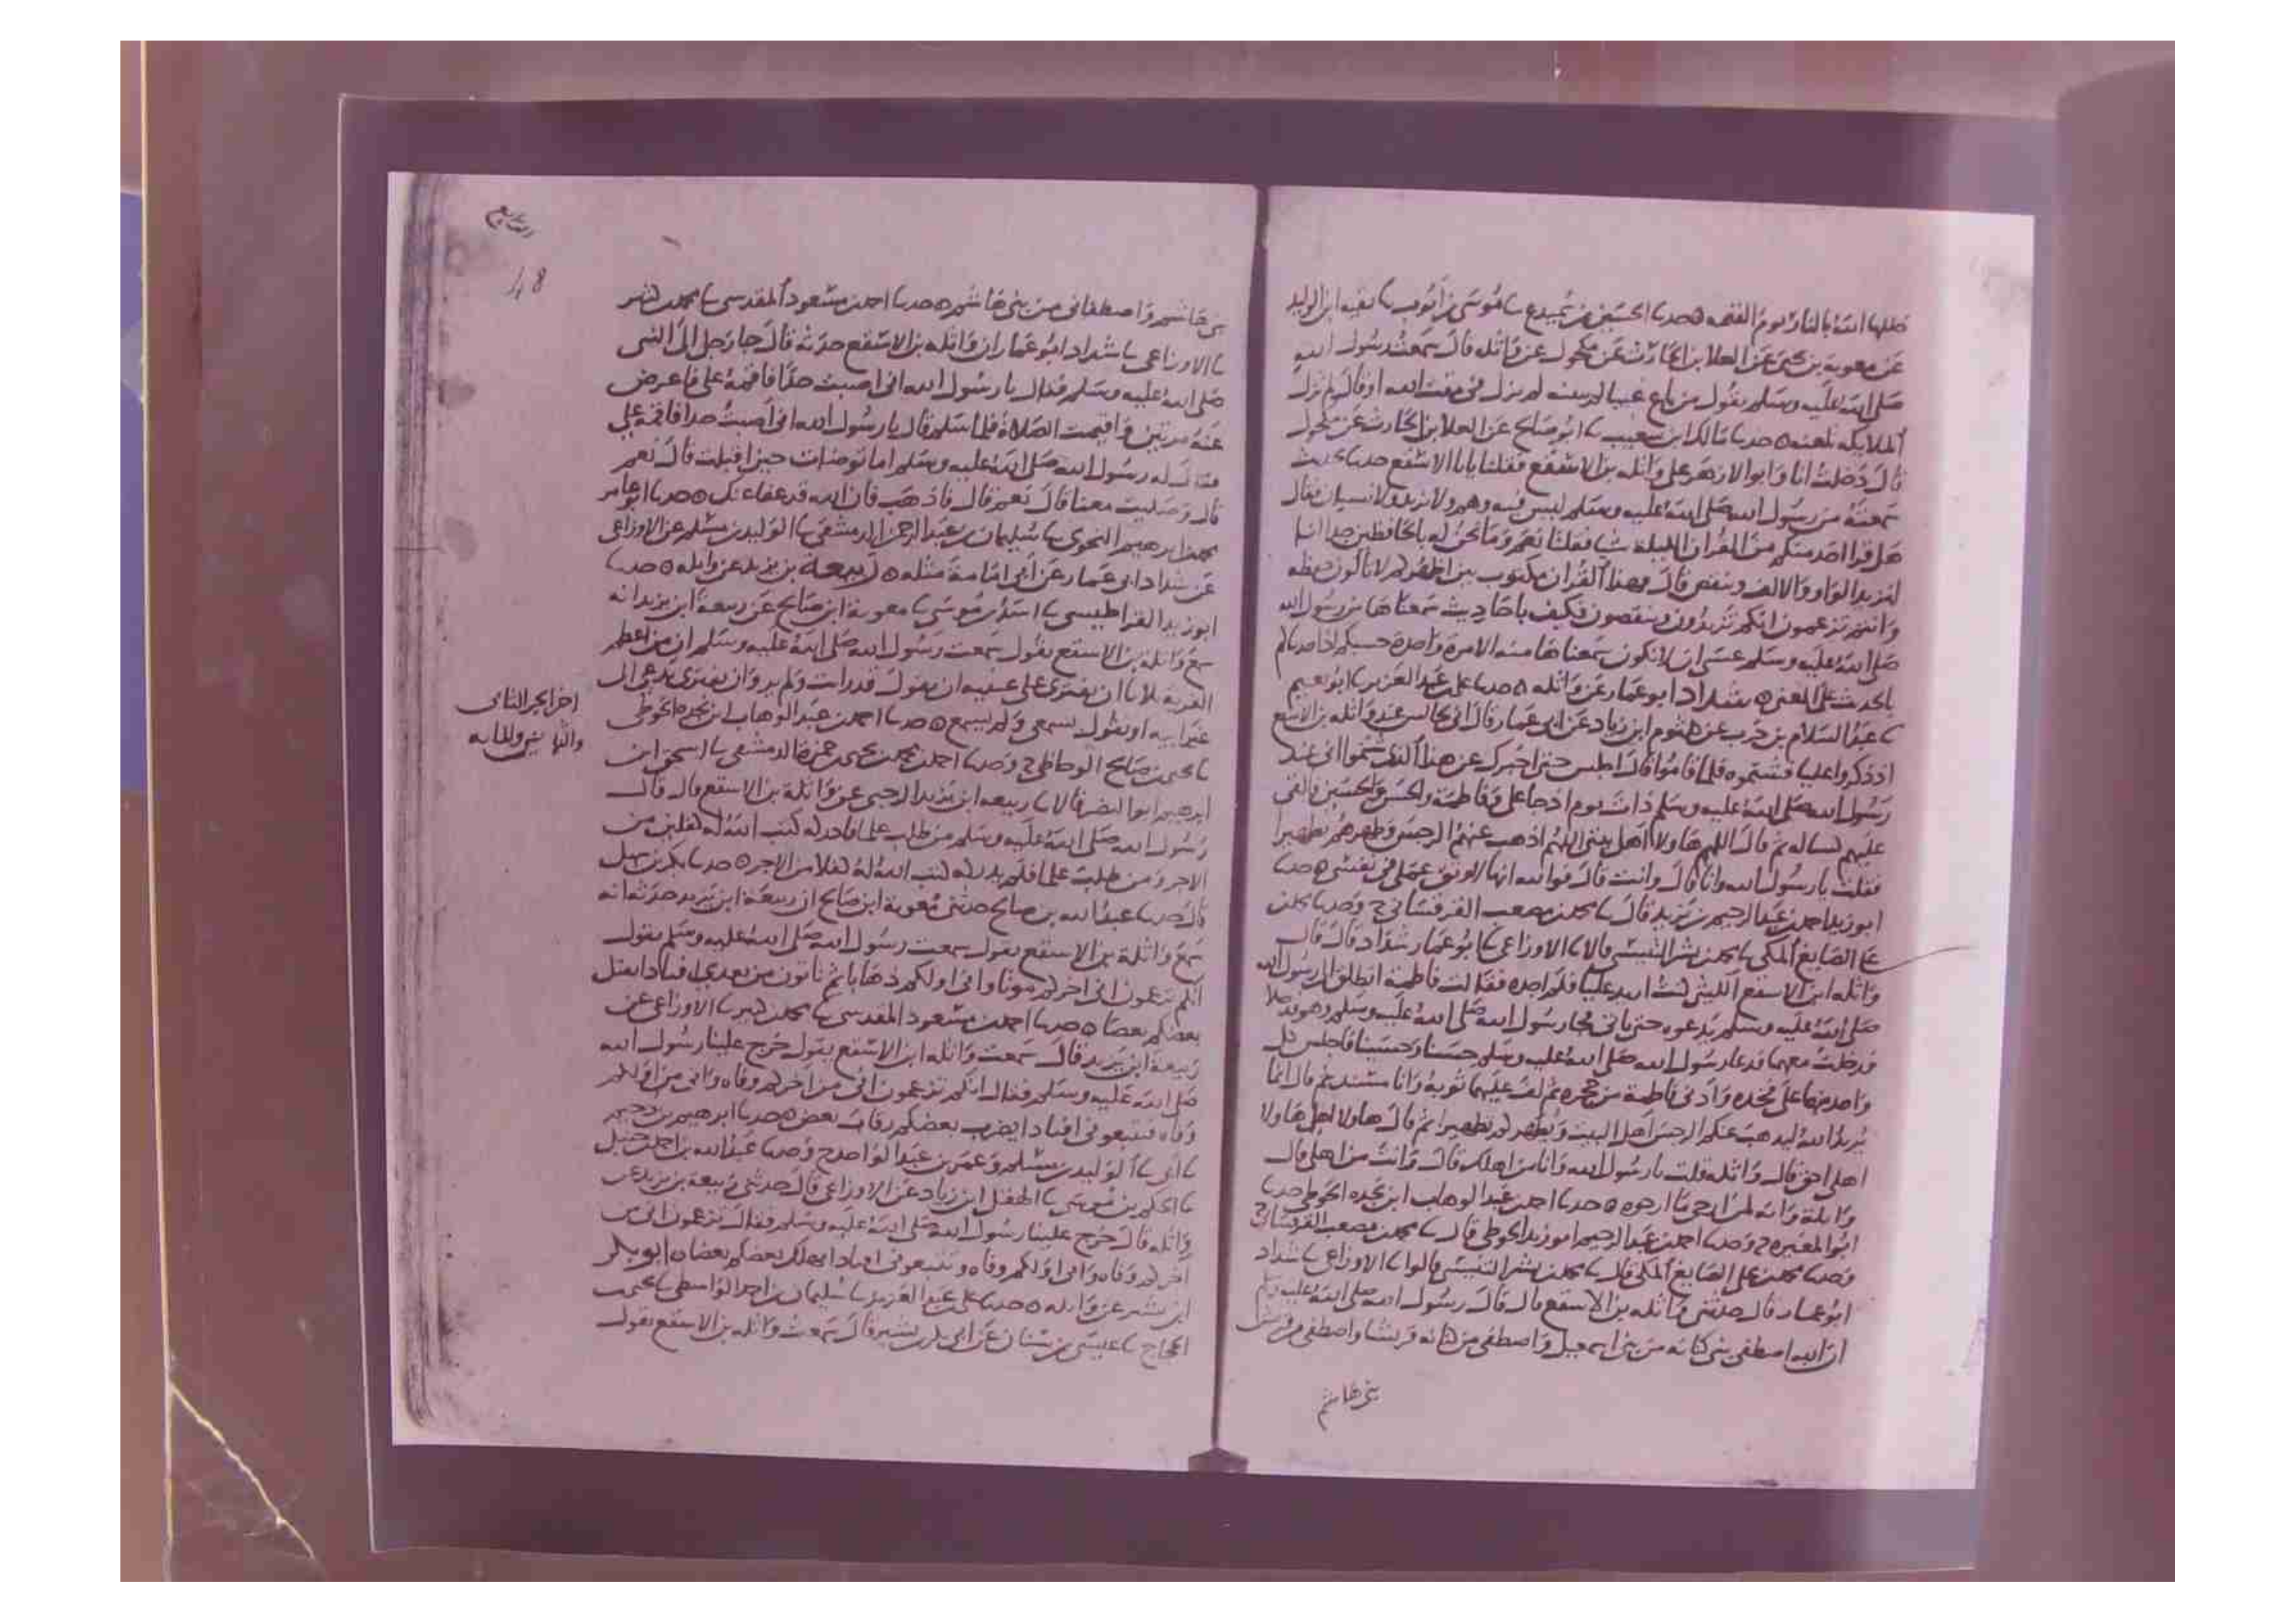 ظلها الله بالنار يوم القيمه ٥ حدثنا الحسين بن السميدع ثنا موسى بن أيوب ثنا بقيه ابن الوليد
عن معوية بن يحيى عن العلا بن الحارث عن مكحول عن واثله قال سمعت رسول الله
صلى الله عليه وسلم يقول من باع عيبا لم يبينه لم يزل في مقت الله او قال لم تزل
الملايكه تلعنه ٥ حدثنا مالك ابن شعيب ثنا ابو صالح عن العلا بن الحارث عن مكحول
قال دخلت انا وابو الازهر على واثله بن الاسقع فقلنا يابا الاسقع حدثنا بحديث
سمعته من رسول الله صلى الله عليه وسلم ليس فيه وهم ولا تزيد ولا نسيان فقال
هل قرا احد منكم من القران الليلة شيا فقلنا نعم وما نحن له بالحافظين جدا انا
لنزيد الواو والالف وننقص قال فهذا القران مكتوب بين اظهركم لا تالون حفظه
وانتم تزعمون انكم تزيدون وتنقصون فكيف باحاديث سمعناها من رسول الله
صلى الله عليه وسلم عسى ان لا نكون سمعناها منه الا مرة واحدة حسبكم اذا حدثناكم
بالحديث على المعنى ٥ شداد ابو عمار عن واثله ٥ حدثنا على بن عبد العزيز ثنا ابو نعيم
ثنا عبد السلام بن حرب عن كلثوم ابن زياد عن ابي عمار قال انى لجالس عند واثله بن الاسقع
اذ ذكروا عليا فشتموه فلما قاموا قال اجلس حتى اخبرك عن هذا الذى شتموا انى عند
رسول الله صلى الله عليه وسلم ذات يوم اذ جا على وفاطمة والحسن والحسين فالقى
عليهم كسا له ثم قال اللهم هاولا اهل بيتي اللهم اذهب عنهم الرجس وطهرهم تطهيرا
فقلت يا رسول الله وانا قال وانت قال فوالله انها لاوثق عملى في نفسى ٥ حدثنا
ابو زيد احمد بن عبد الرحيم بن يزيد قال ثنا محمد بن مصعب القرقسانى ح وحدثنا محمد بن
على الصايغ المكى ثنا محمد بن بشر التنيسى قالا ثنا الاوزاعى ثنا ابو عمار شداد قال قال
واثله ابن الاسقع الليثى كنت اريد عليا فلم اجده فقالت فاطمة انطلق الى رسول الله
صلى الله عليه وسلم يدعوه حتى ياتى فجا رسول الله صلى الله عليه وسلم وهو فدخلا
فدخلت معهما فدعا رسول الله صلى الله عليه وسلم حسنا وحسينا فاجلس كل
واحد منهما على فخده وادنى فاطمة من حجره ثم لف عليهما ثوبه وانا مستند ثم قال انما
يريد الله ليذهب عنكم الرجس اهل البيت ويطهركم تطهيرا ثم قال هاولا اهلى هاولا
اهلى احق قال واثله قلت يا رسول الله وانا من اهلك قال وانت من اهلى قال
واثلة وانه لمن ارجى ما ارجوه ٥ حدثنا احمد بن عبد الوهاب ابن نجده الحوطى حدثنا
ابو المغيره ح وحدثنا احمد بن عبد الرحيم ابو زيد الحوطى قال ثنا محمد بن مصعب القرقسانى ح
وحدثنا محمد بن على الصايغ المكى قال ثنا محمد بن بشر التنيسى قالوا ثنا الاوزاعى ثنا شداد
ابو عمار قال حدثنى واثله بن الاسقع قال قال رسول الله صلى الله عليه وسلم
ان الله اصطفى بنى كنانه من بنى اسمعيل واصطفى من كنانه قريشا واصطفى من قريش
بنى هاشم
48
بنى هاشم واصطفانى من بنى هاشم ٥ حدثنا احمد بن مسعود المقدسى ثنا محمد بن كثير
ثنا الاوزاعى ثنا شداد ابو عمار ان واثله بن الاسقع حدثه قال جا رجل الى النبى
صلى الله عليه وسلم فقال يا رسول الله انى اصبت حدا فاقمه على فاعرض
عنه مرتين واقيمت الصلاة فلما سلم قال يا رسول الله انى اصبت حدا فاقمه على
فقال له رسول الله صلى الله عليه وسلم اما توضات حين اقبلت قال نعم
قال وصليت معنا قال نعم قال فاذهب فان الله قد عفا عنك ٥ حدثنا ابو عامر
محمد بن ابرهيم النحوى ثنا سليمان بن عبد الرحمن الدمشقى ثنا الوليد بن مسلم عن الاوزاعى
عن شداد ابى عمار عن ابى امامة مثله ٥ ربيعة بن يزيد عن واثله ٥ حدثنا
ابو زيد القراطيسى ثنا اسد بن موسى ثنا معوية ابن صالح عن ربيعة ابن يزيد انه
سمع واثلة بن الاسقع يقول سمعت رسول الله صلى الله عليه وسلم ان من اعظم
الفرية ثلاثا ان يفترى على عينيه ان يقول قد رات ولم ير وان يفترى يدعى الى
غير ابيه او يقول يسمعى ولم يسمع ٥ حدثنا احمد بن عبد الوهاب ابن نجده الحوطى
ثنا يحيى بن صالح الوحاظى ح وحدثنا احمد بن محمد بن يحيى بن حمزة الدمشقى ثنا اسحق ابن
ابرهيم ابو النضر قالا ثنا ربيعه ابن يزيد الرحبى عن واثلة بن الاسقع قال قال
رسول الله صلى الله عليه وسلم من طلب علما فادركه كتب الله له كفلين من
الاجر ومن طلب علما فلم يدركه كتب الله له كفلا من الاجر ٥ حدثنا بكر بن سهل
قال حدثنا عبد الله بن صالح حدثنى معوية ابن صالح ان ربيعة ابن يزيد حدثه انه
سمع واثلة بن الاسقع يقول سمعت رسول الله صلى الله عليه وسلم يقول
انكم تزعمون انى اخركم موتا وانى اولكم ذهابا ثم تاتون من بعدى افنادا يقتل
بعضكم بعضا ٥ حدثنا احمد بن مسعود المقدسى ثنا محمد بن كثير ثنا الاوزاعى عن
ربيعة ابن يزيد قال سمعت واثله ابن الاسقع يقول خرج علينا رسول الله
صلى الله عليه وسلم فقال انكم تزعمون انى من اخركم وفاه وانى من اولكم
وفاه فتتبعونى افنادا يضرب بعضكم رقاب بعض ٥ حدثنا ابرهيم بن دحيم
ثنا ابى ثنا الوليد بن مسلم وعمر بن عبد الواحد ح وحدثنا عبد الله بن احمد بن حنبل
ثنا الحكم بن موسى ثنا الهقل ابن زياد عن الاوزاعى قال حدثنى ربيعة بن يزيد عن
واثله قال خرج علينا رسول الله صلى الله عليه وسلم فقال تزعمون انى من
اخركم وفاه وانى اولكم وفاه وتتبعونى افنادا يهلك بعضكم بعضا ٥ ابو بكر
ابن بشير عن واثله ٥ حدثنا على بن عبد العزيز ثنا سليمان بن احمد الواسطى ثنا محمد بن
الحجاج ثنا عيسى بن سنان عن ابى بكر بن بشير قال سمعت واثله بن الاسقع يقول
اخر الجز الثانى
والثلاثين والمايه